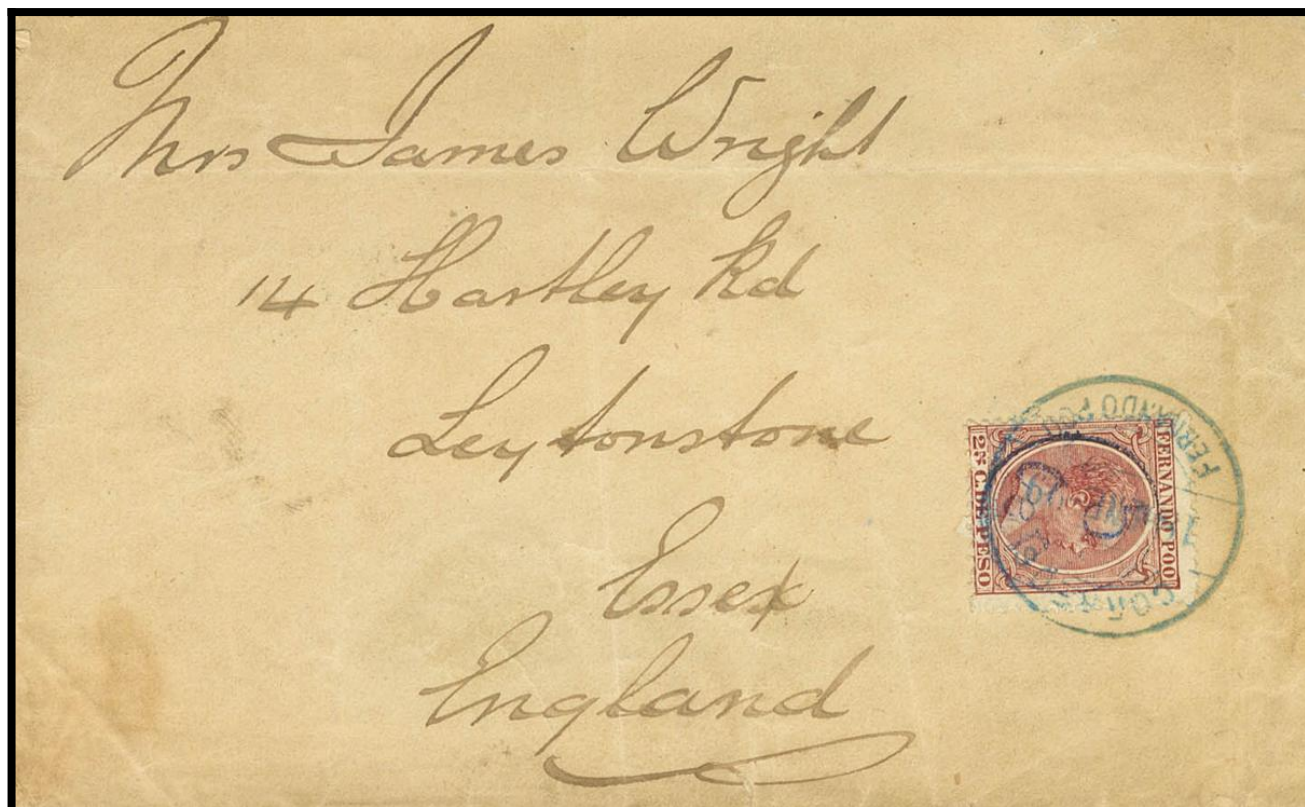 Mrs James Wright
14 Hartley Rd
Leytonstone
Essex
England
FERNANDO POO
FERNANDO POO